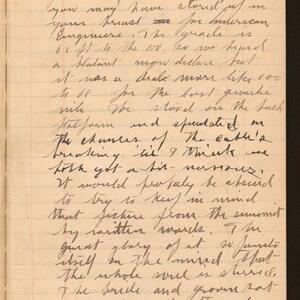 you may have stored up in
your breast for American
Engineers. The grade is
68 ft to the 100, so we heard
a blatant man declare but
it was a deale more like 100
to 68 for the last quarter
mile. We stood on the back
platform and speculated on
the chances of the cable's
breaking 'til I think we
both got a bit nervous.
It would probaly be absurd
to try to keep in mind
that picture from the summit
by written words. The
great glory of it so paints
itself in the mind that
the whole soul is stirred.
The bride and groom sat